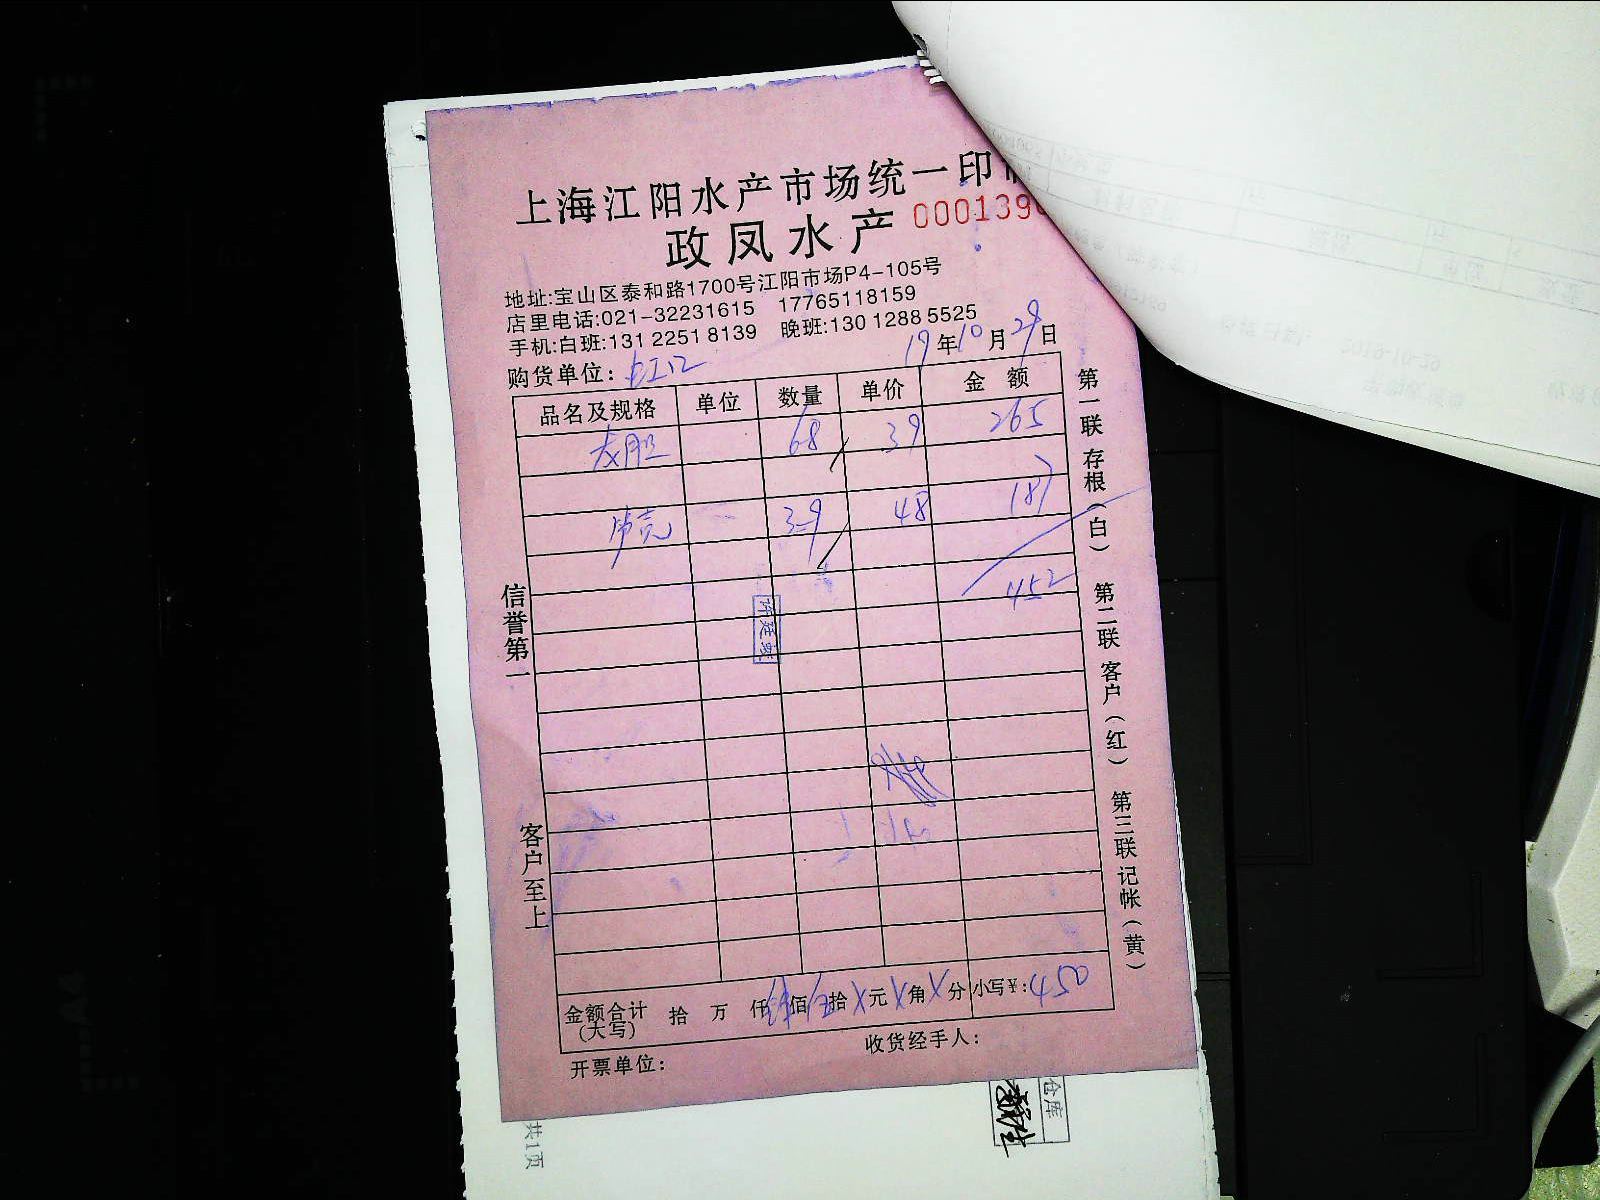 上海江阳水产市场统一印
政凤水产 000139
地址:宝山区泰和路1700号江阳市场P4-105号
店里电话:021-32231615 17765118159
手机:白班:131 2251 8139 晚班:130 1288 5525
购货单位: 虹口 19年10月29日
品名及规格 单位 数量 单价 金额
68 39 265
3-9 48 187
452
信誉第一
客户至上
第一联 存根(白) 第二联 客户(红) 第三联 记帐(黄)
金额合计(大写) 拾 万 仟 肆佰 伍拾 X元 X角 X分 小写¥:450
开票单位: 收货经手人:
仓库
共1页